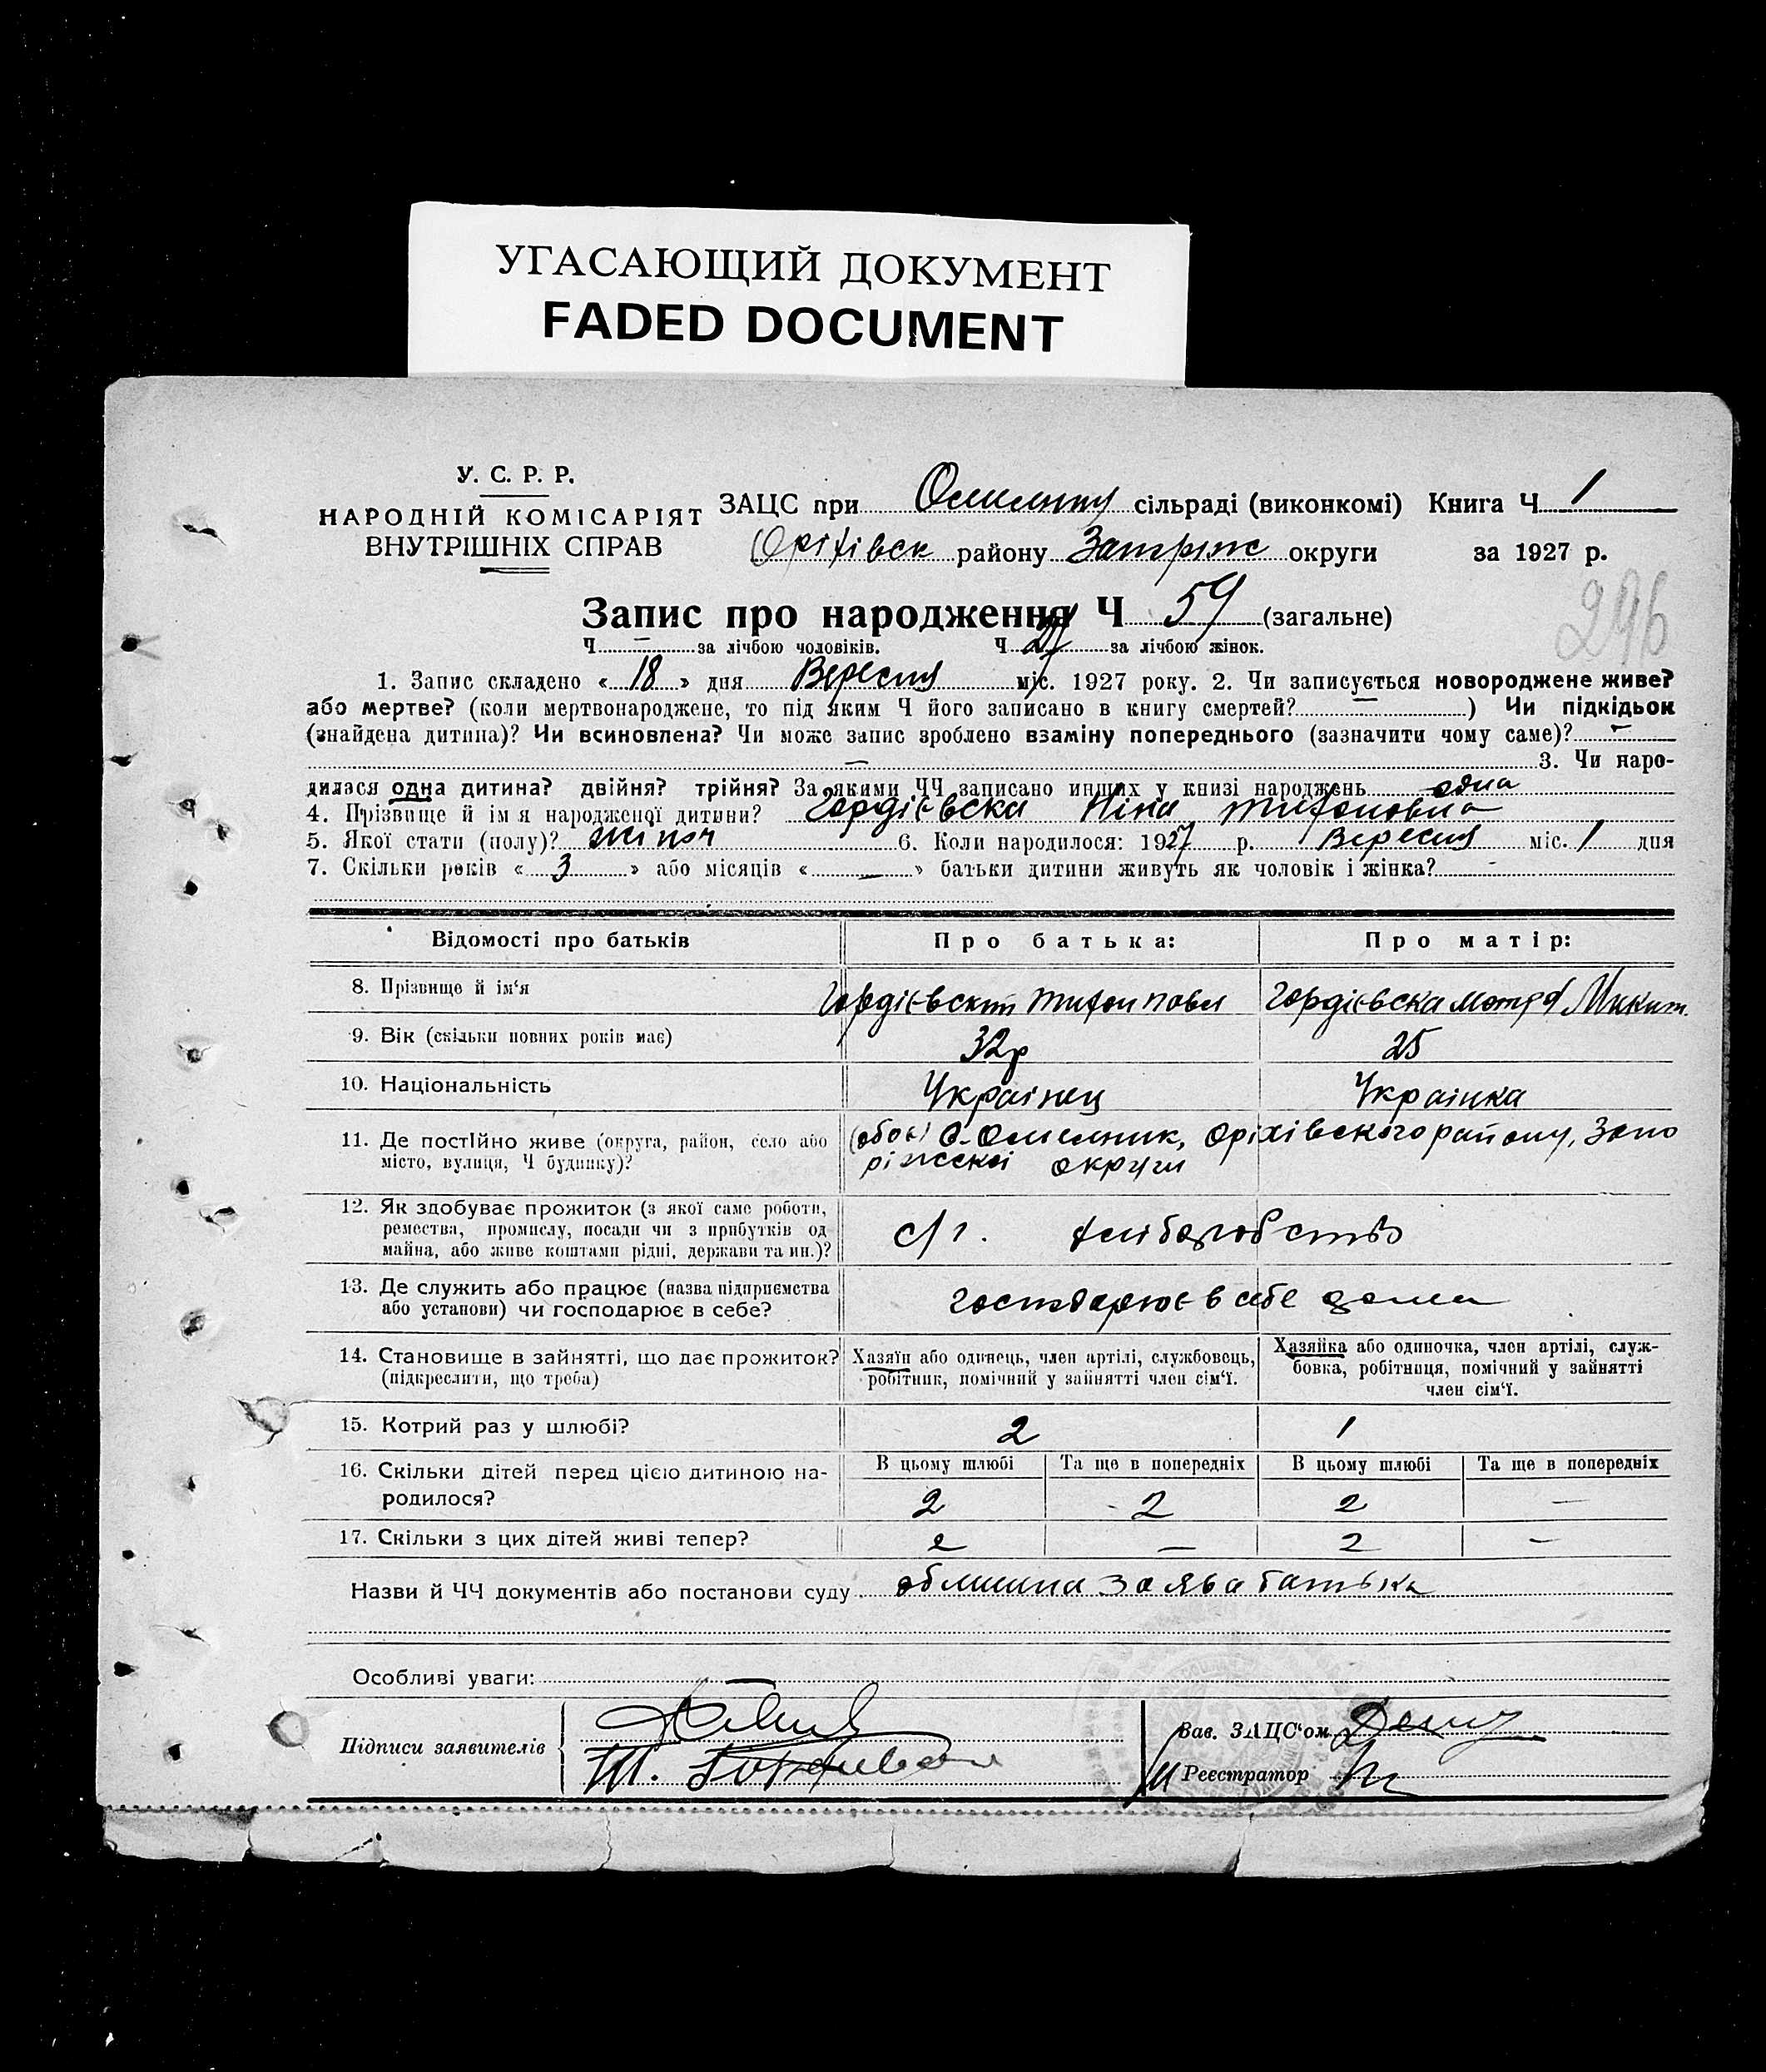 УГАСАЮЩИЙ ДОКУМЕНТ
FADED DOCUMENT
У. С. Р. Р.
НАРОДНІЙ КОМІСАРІЯТ
ВНУТРІШНІХ СПРАВ
ЗАЦС при сільраді (виконкомі) Книга Ч 1
Оріхівск району округи за 1927 р.
296
Запис про народження Ч 59 (загальне)
Ч — за лічбою чоловіків. Ч 27 за лічбою жінок.
1. Запис складено « 18 » дня Вересня міс. 1927 року. 2. Чи записується новороджене живе?
або мертве? (коли мертвонароджене, то під яким Ч його записано в книгу смертей? — ) Чи підкідьок
(знайдена дитина)? Чи всиновлена? Чи може запис зроблено взаміну попереднього (зазначити чому саме)? —
— 3. Чи наро-
дилася одна дитина? двійня? трійня? За якими ЧЧ записано инших у книзі народжень одна
4. Прізвище й ім'я народженої дитини? Гордієвска Ніна Тихоновна
5. Якої стати (полу)? жіноч 6. Коли народилося: 1927 р. Вересня міс. 1 дня
7. Скільки років « 3 » або місяців « — » батьки дитини живуть як чоловік і жінка? -
Відомості про батьків Про батька: Про матір:
8. Прізвище й ім'я Гордієвский Тихон Павл Гордієвска Мотря Микит.
9. Вік (скільки повних років має) 32р 25
10. Національність Украінец Украінка
11. Де постійно живе (округа, район, село або (обоє) С. Омельник, Оріхівского району, Запо
місто, вулиця, Ч будинку)? ріжскоі округи
12. Як здобуває прожиток (з якої саме роботи, с/г. хліборобство
ремества, промислу, посади чи з прибутків од
майна, або живе коштами рідні, держави та ин.)?
13. Де служить або працює (назва підприємства господарює в себе дома
або установи) чи господарює в себе?
14. Становище в зайнятті, що дає прожиток? Хазяїн або одинець, член артілі, службовець, Хазяйка або одиночка, член артілі, служ-
(підкреслити, що треба) робітник, помічний у зайнятті член сім'ї. бовка, робітниця, помічний у зайнятті
член сім'ї.
15. Котрий раз у шлюбі? 2 1
16. Скільки дітей перед цією дитиною на- В цьому шлюбі Та ще в попередніх В цьому шлюбі Та ще в попередніх
родилося? 2 2 2 —
17. Скільки з цих дітей живі тепер? 2 — 2 —
Назви й ЧЧ документів або постанови суду заява батька
Особливі уваги:
Підписи заявителів Зав. ЗАЦС'ом
Т. Реєстратор